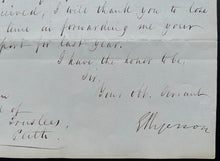 ceived, I will thank you to lose
time in forwarding me your
port for last year.
I have the honor to be,
Sir,
Your obt. Servant
ERyerson
of
Trustees,
Perth.